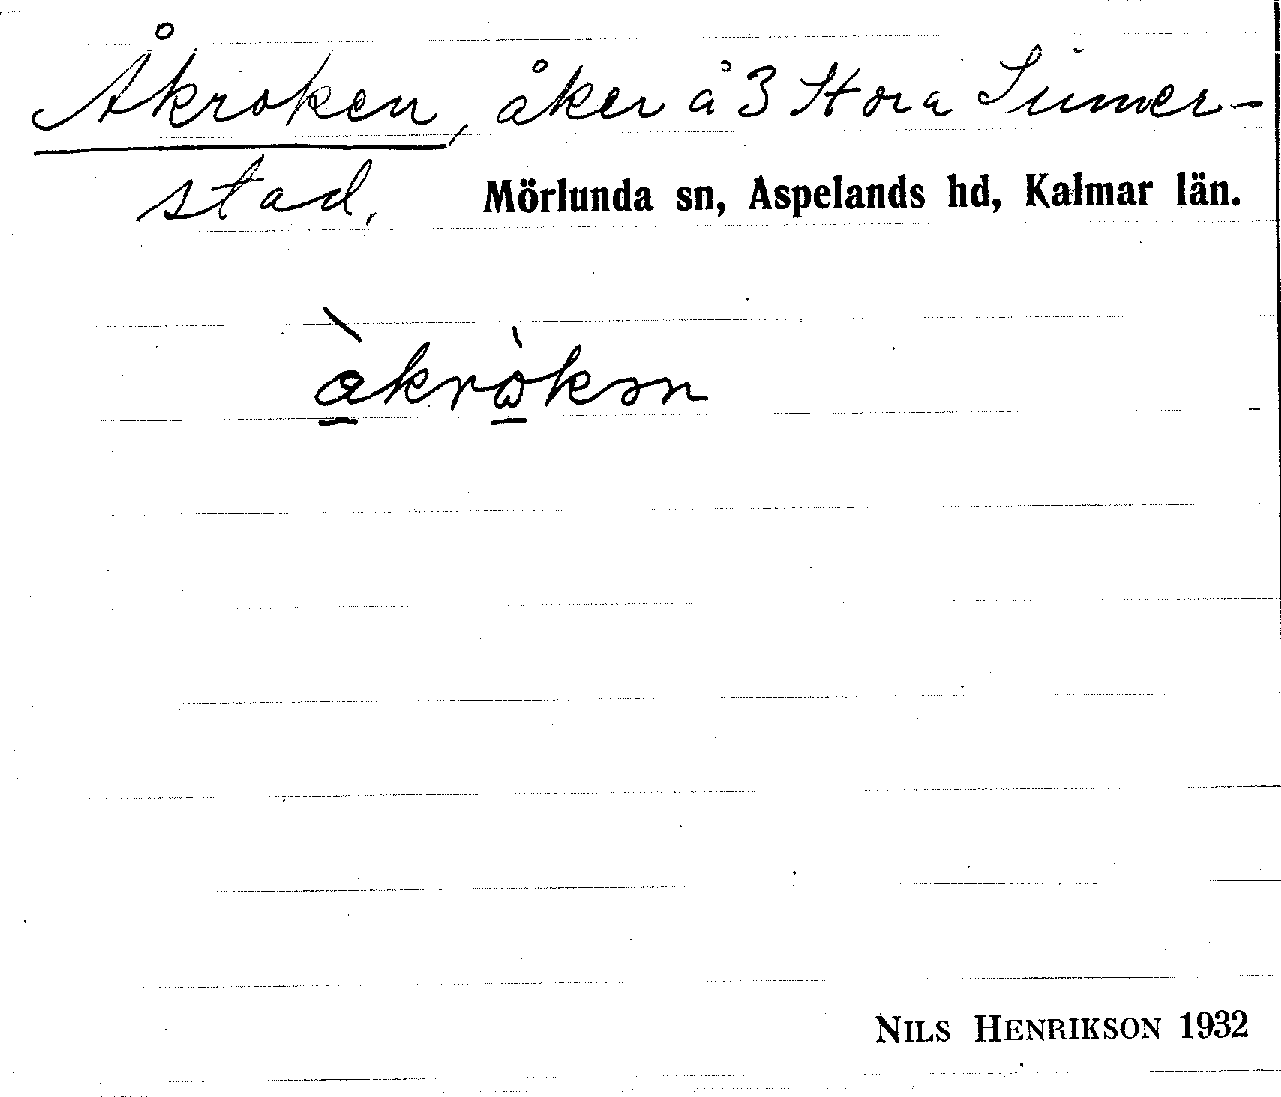 Åkroken, åker å 3 Stora Simmer-
stad, Mörlunda sn, Aspelands hd, Kalmar län.
NILS HENRIKSON 1932